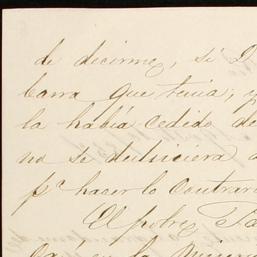 de decirme, si D
barra que tenia, y
la había cedido de
no se detuviera a
pª hacer lo contrari
El pobre Pa